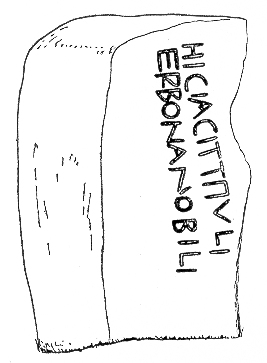 HICIACITMVLI
ERBONANOBILI